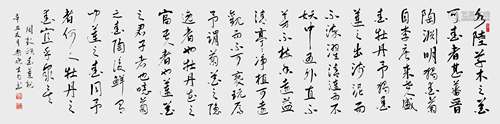 水陸草木之花
可愛者甚蕃晉
陶淵明獨愛菊
自李唐來世人盛
愛牡丹予獨愛
蓮之出淤泥而
不染濯清漣而不
妖中通外直不
蔓不枝香遠益
清亭亭淨植可遠
觀而不可褻玩焉
予謂菊花之隱
逸者也牡丹花之
富貴者也蓮花
之君子者也噫菊
之愛陶後鮮有
聞蓮之愛同予
者何人牡丹之
愛宜乎眾矣
周敦頤愛蓮說